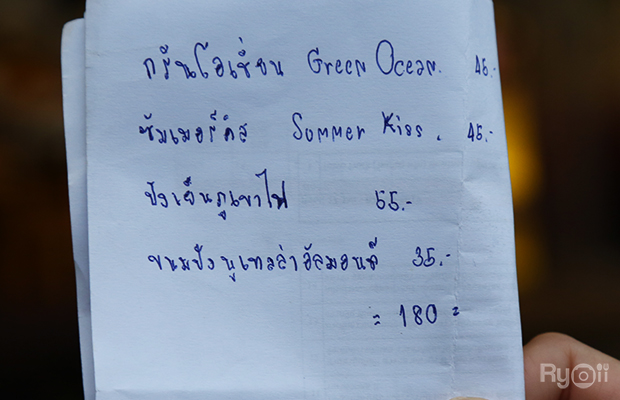 กรีนโอเชี่ยน Green Ocean. 45.-
ซัมเมอร์คิส Summer Kiss. 45.-
ปังเย็นภูเขาไฟ 55.-
ขนมปังนูเทลล่าอัลมอนด์ 35.-
= 180 =
Ryoii